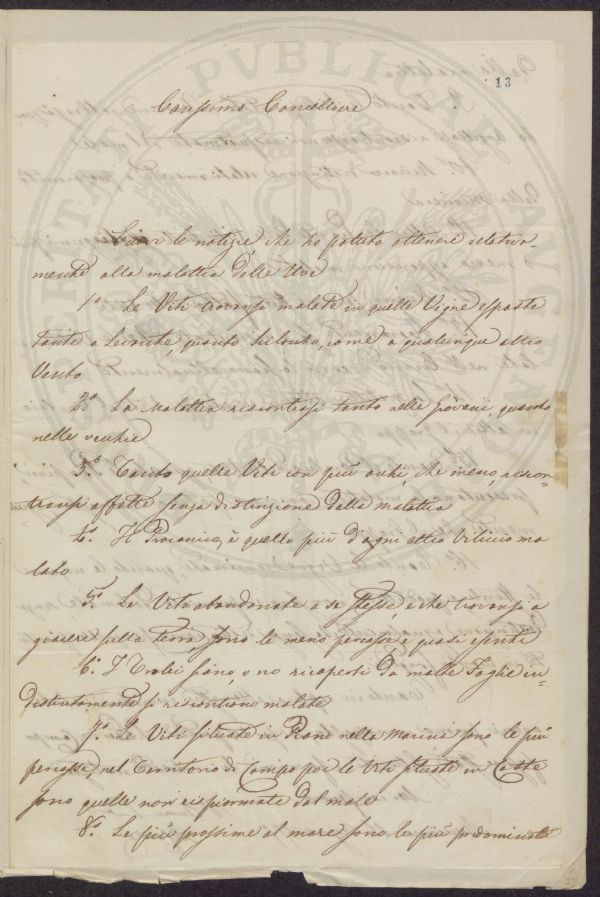 13
Carissimo Cancelliere
le notizie, che ho potuto ottenere relativa-
mente alla malattia delle Uve
1.º Le Viti trovansi malate in quelle Vigne esposte
tanto a quanto come a qualunque altro
Vento
2.º La Malattia riscontrasi tanto nelle giovani, quanto
nelle vecchie
3.º Tanto quelle Viti con più occhi, che meno, riscon-
transi affette senza distinzione dalla malattia
4.º Il Procanico, è quello più d'ogni altro Viticcio ma
lato
5.º Le Viti abandonate a se stesse, e che trovansi a
giacere sulla Terra, sono le meno percosse, e quasi esenti
6.º I Tralci siano, o no ricoperti da molte Foglie in-
distintamente si riscontrano malate
7.º Le Viti situate in Piano nella Marina sono le più
percosse, nel Territorio di Campo poi le Viti situate in Coste
sono quelle non risparmiate dal male
8.º Le più prossime al mare sono le più predominate